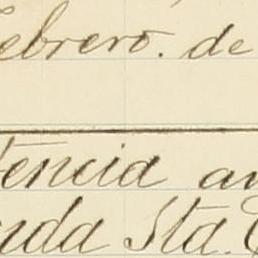 ebrero. de
tencia an
ida Sta.